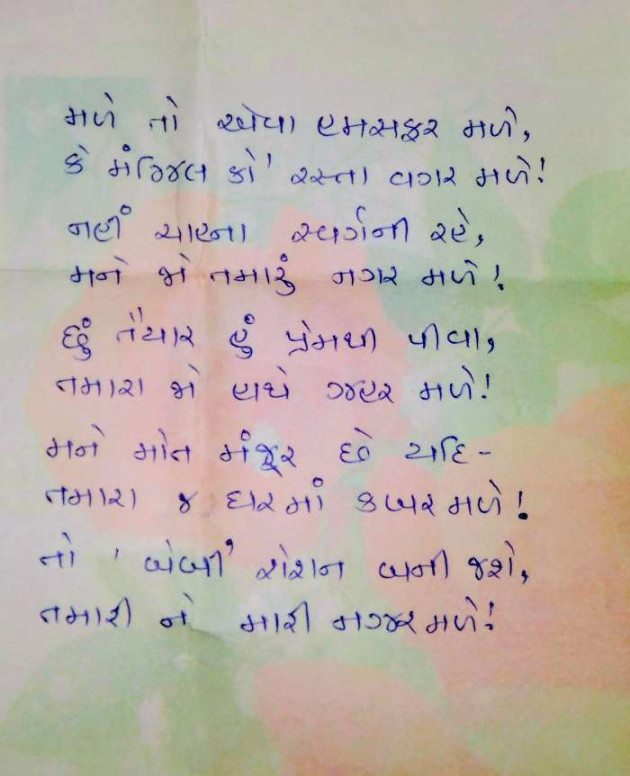 મળે તો એવા હમસફર મળે,
કે મંઝિલ કો' રસ્તા વગર મળે!
નહીં ચાહના સ્વર્ગની રહે,
મને જો તમારું નગર મળે!
છું તૈયાર હું પ્રેમથી પીવા,
તમારા જો હાથે ઝહર મળે!
મને મોત મંજૂર છે યદિ-
તમારા જ ઘરમાં કબર મળે!
તો 'બેબી' રોશન બની જશે,
તમારી ને મારી નઝર મળે!